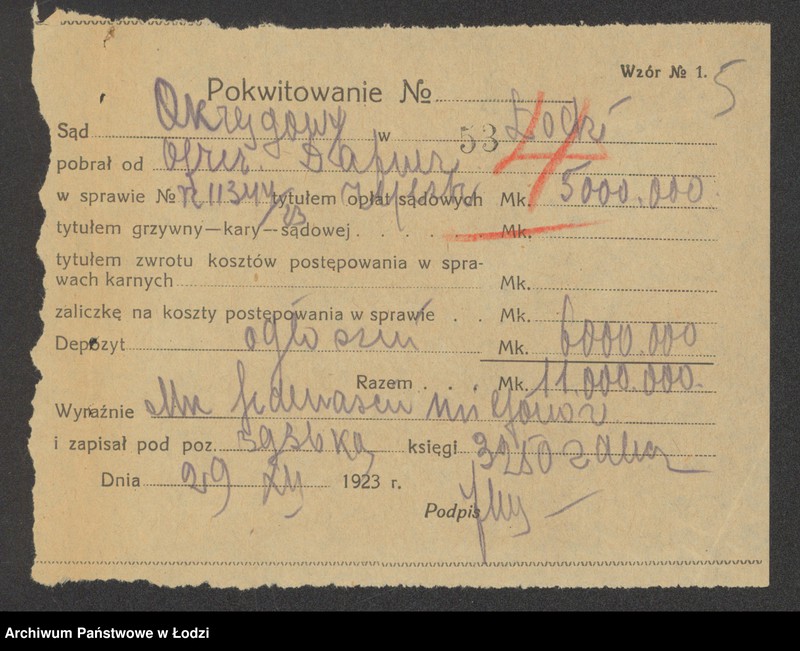 Wzór № 1. 5
Pokwitowanie №
4
Sąd Okręgowy w 53 Łodzi
pobrał od
w sprawie № R 11344/23 tytułem opłat sądowych Mk. 5000.000
tytułem grzywny—kary—sądowej . . . . . Mk.
tytułem zwrotu kosztów postępowania w spra-
wach karnych Mk.
zaliczkę na koszty postępowania w sprawie . . Mk.
Depozyt ogłoszeń Mk. 6000.000
Razem . . . Mk. 11.000.000.
Wyraźnie Mk jedenaście milionów
i zapisał pod poz. księgi
Dnia 29 XII 1923 r.
Podpis
Archiwum Państwowe w Łodzi